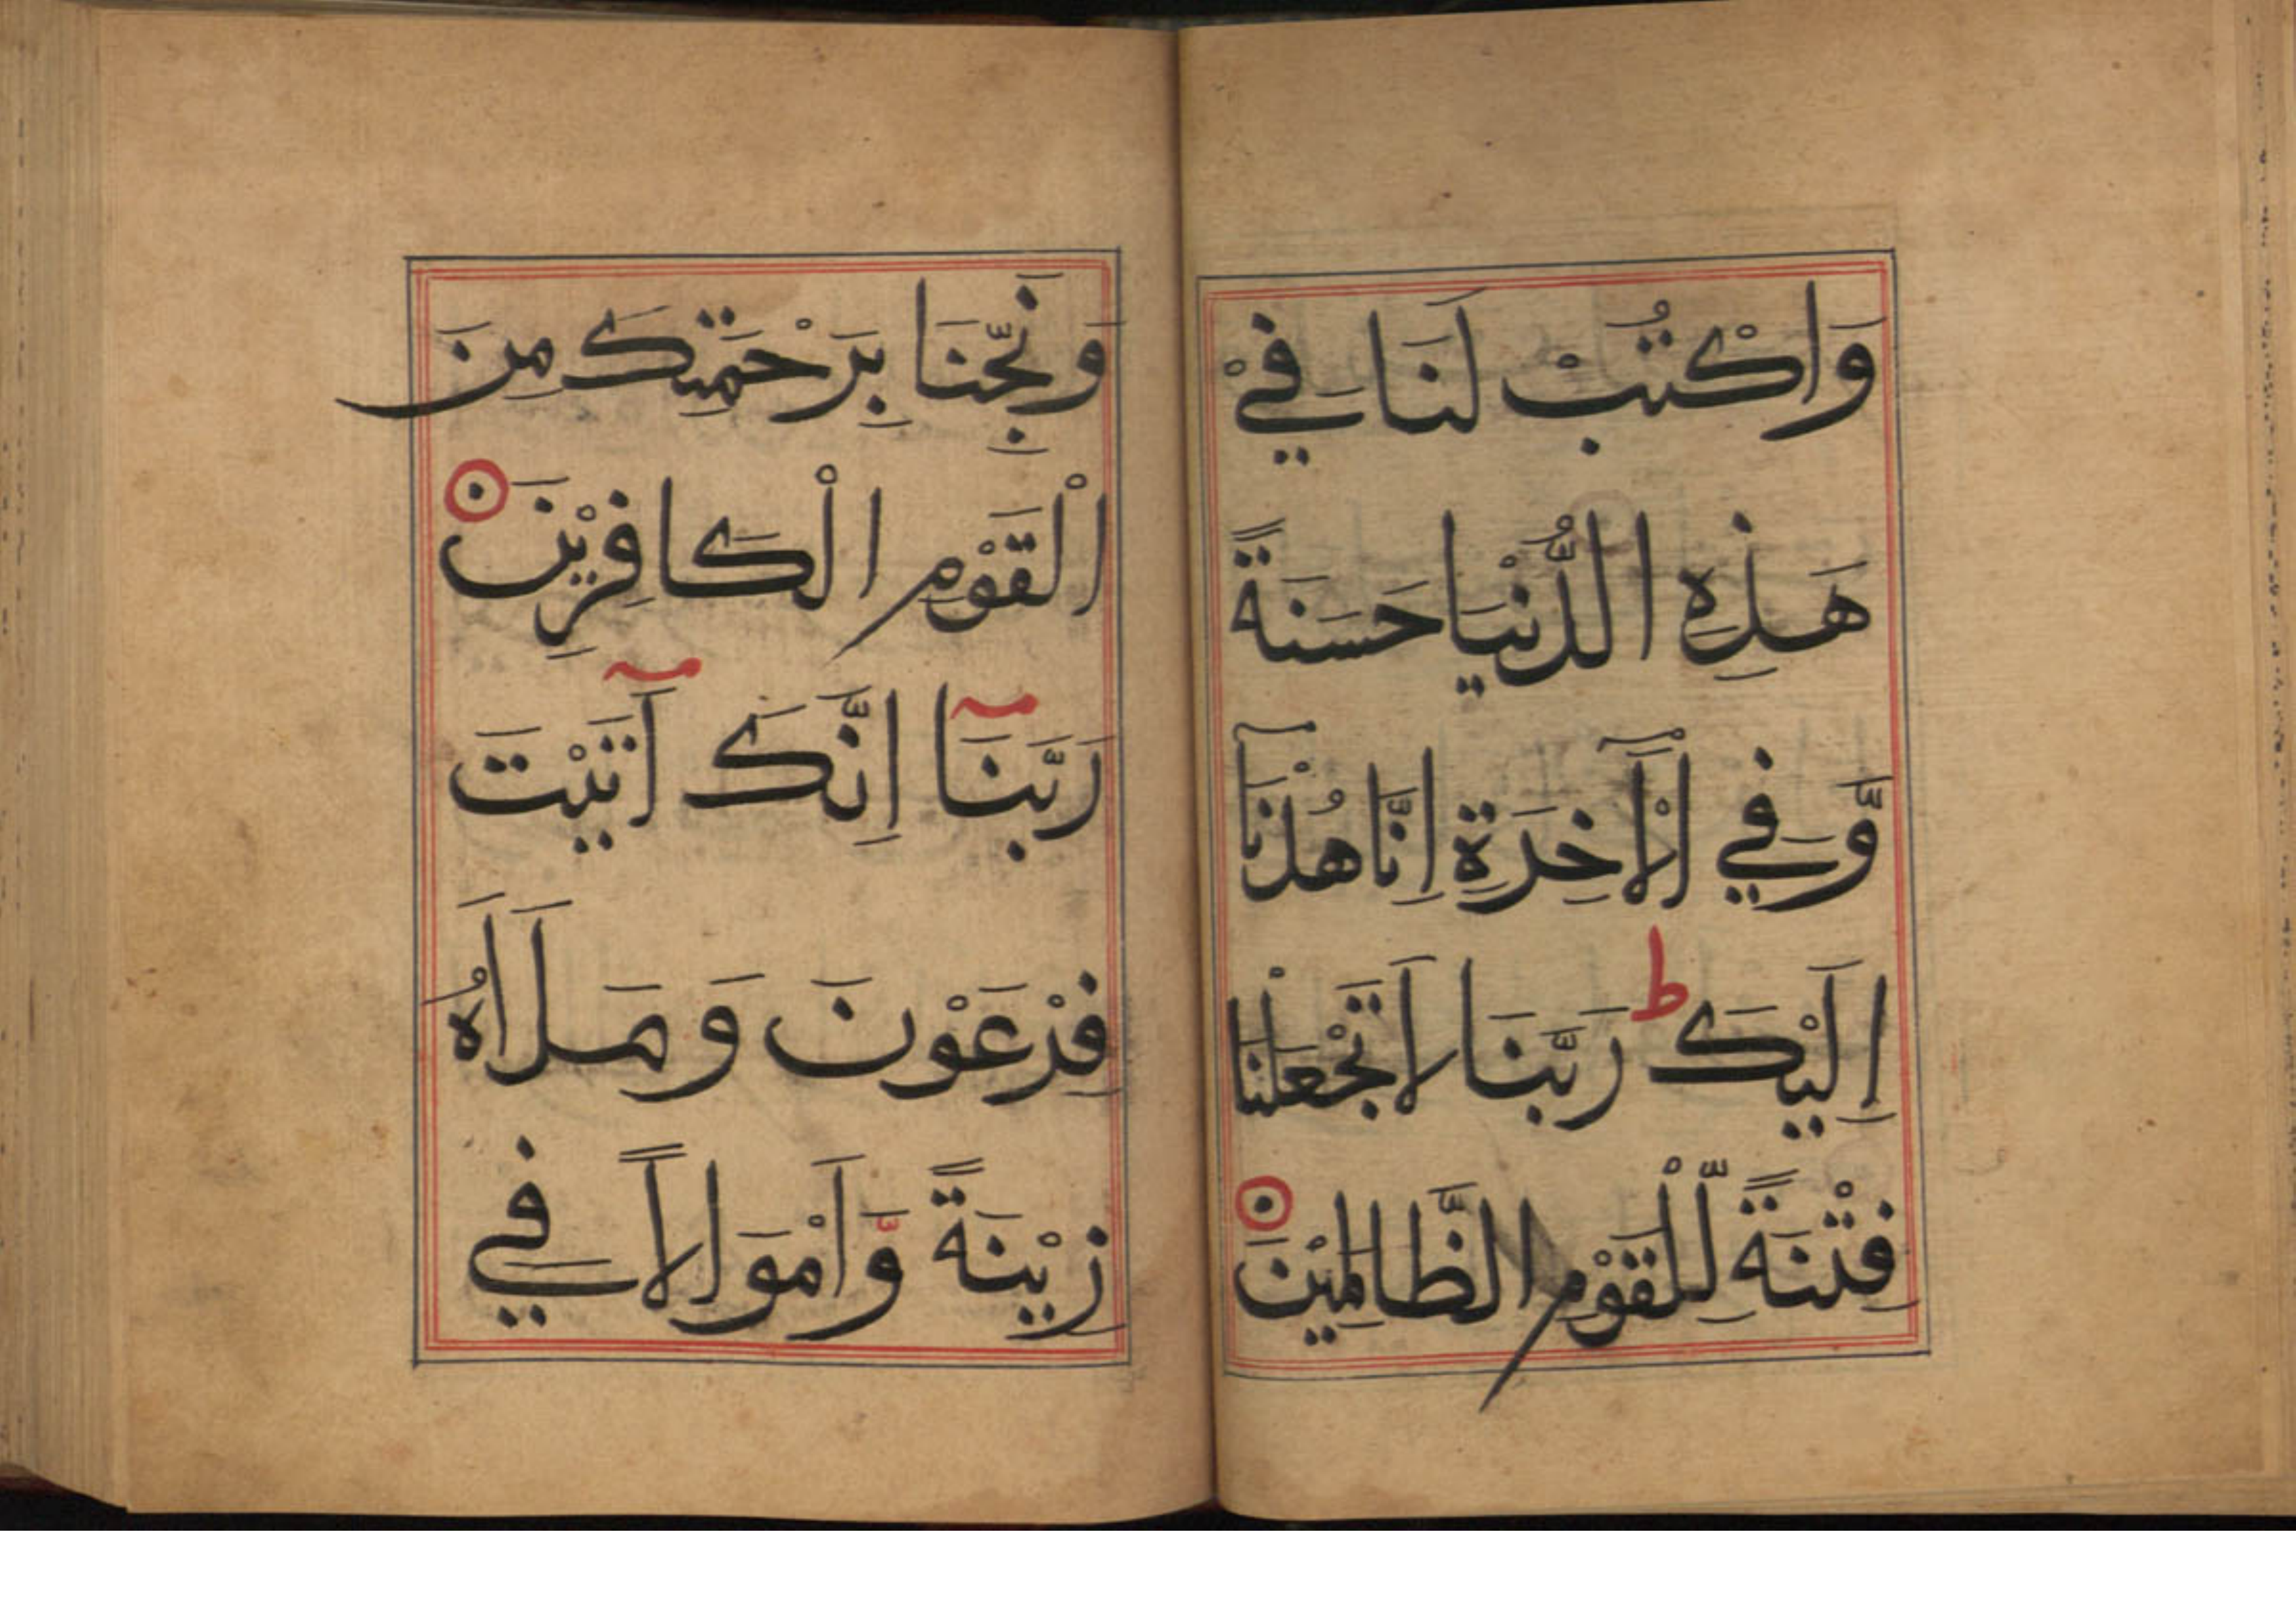 وَاكْتُبْ لَنَا فِيْ
هَذِهِ الدُّنْيَا حَسَنَةً
وَّفِي الْآخِرَةِ اِنَّا هُدْنَآ
اِلَيْكَ ط رَبَّنَا لَا تَجْعَلْنَا
فِتْنَةً لِّلْقَوْمِ الظَّالِمِيْنَ ⊙
وَنَجِّنَا بِرَحْمَتِكَ مِنَ
الْقَوْمِ الْكَافِرِيْنَ ⊙
رَبَّنَآ اِنَّكَ آتَيْتَ
فِرْعَوْنَ وَمَلَاَهُ
زِيْنَةً وَّاَمْوَالًا فِي